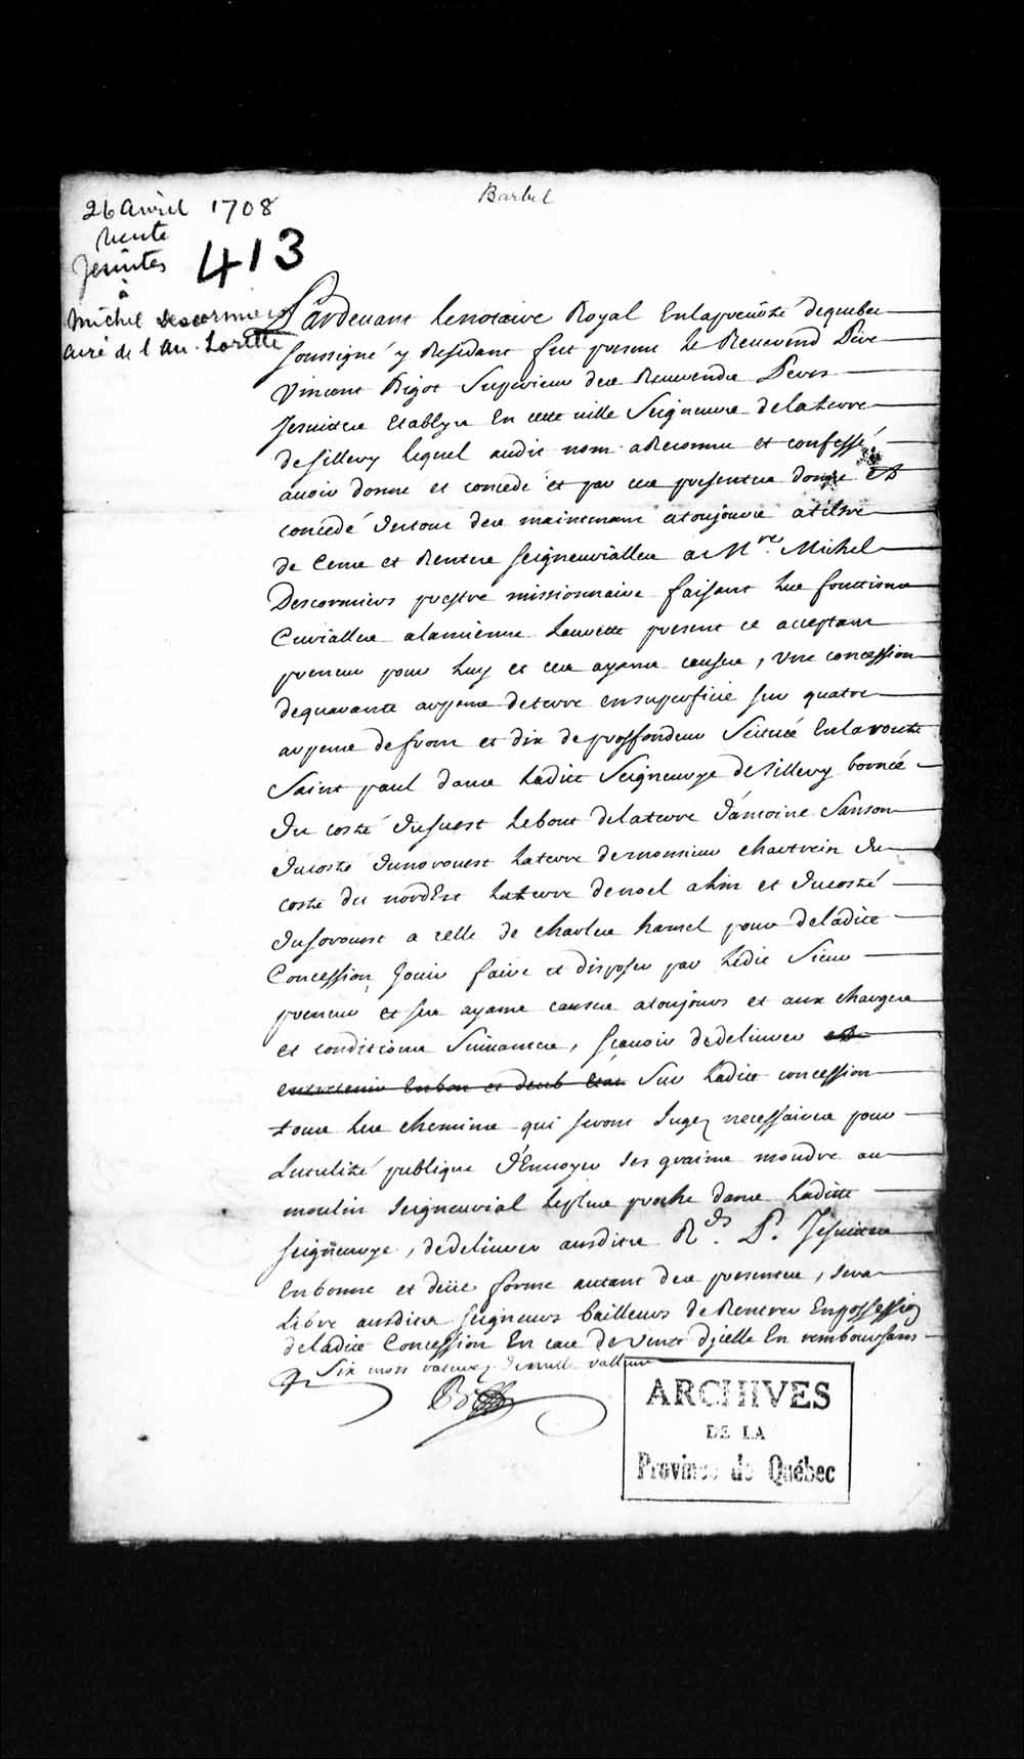 Barbel
26 avril 1708
vente
Jesuites
413
à
Michel Descormiers
curé de l'An. Lorette
Pardevant lenotaire Royal Enlaprevôté dequebec
soussigné y Residant fut present le Reverend Pere
Vincent Bigot Superieur des Reverends Peres
Jesuites Etablys En cette ville Seigneurs delaterre
desillery lequel audit nom a Reconnu et confessé
avoir donné et concedé et par ces presentes donne et
concede dutout des maintenant atoujours atiltre
de Cens et Rentes seigneurialles a Mre. Michel
Descormiers prestre missionnaire faisant les fonctions
Curialles alancienne Laurette present et acceptant
preneur pour luy et ses ayans causes, une concession
dequarante arpens deterre ensuperficie sur quatre
arpens defront et dix deproffondeur Scituée Enlaroute
Saint paul dans Ladite Seigneurye desillery bornée
du costé dusuest lebout delaterre d'antoine Sanson
ducosté dunorouest laterre demonsieur chartrein du
costé du nordEst laterre denoel alin et ducosté
dusorouest a celle de charles hamel pour deladite
Concession Jouir faire et disposer par ledit Sieur
preneur et ses ayans causes atoujours et aux charges
et conditions Suivantes, sçavoir dedelivrer et
entretenir Enbon et deub Etat Sur ladite concession
tous les chemins qui seront Jugez necessaires pour
Lutilité publique d'Envoyer ses grains moudre au
moulin seigneurial leplus proche dans Ladite
seigneurye, dedelivrer ausdits Rds. P. Jesuites
Enbonne et deüe forme autant des presentes, sera
Libre ausdits seigneurs bailleurs de Rentrer Enpossession
deladite Concession En cas de vente dycelle En remboursant
Six mots rayez de nulle valleur
ARCHIVES
DE LA
Province de Québec